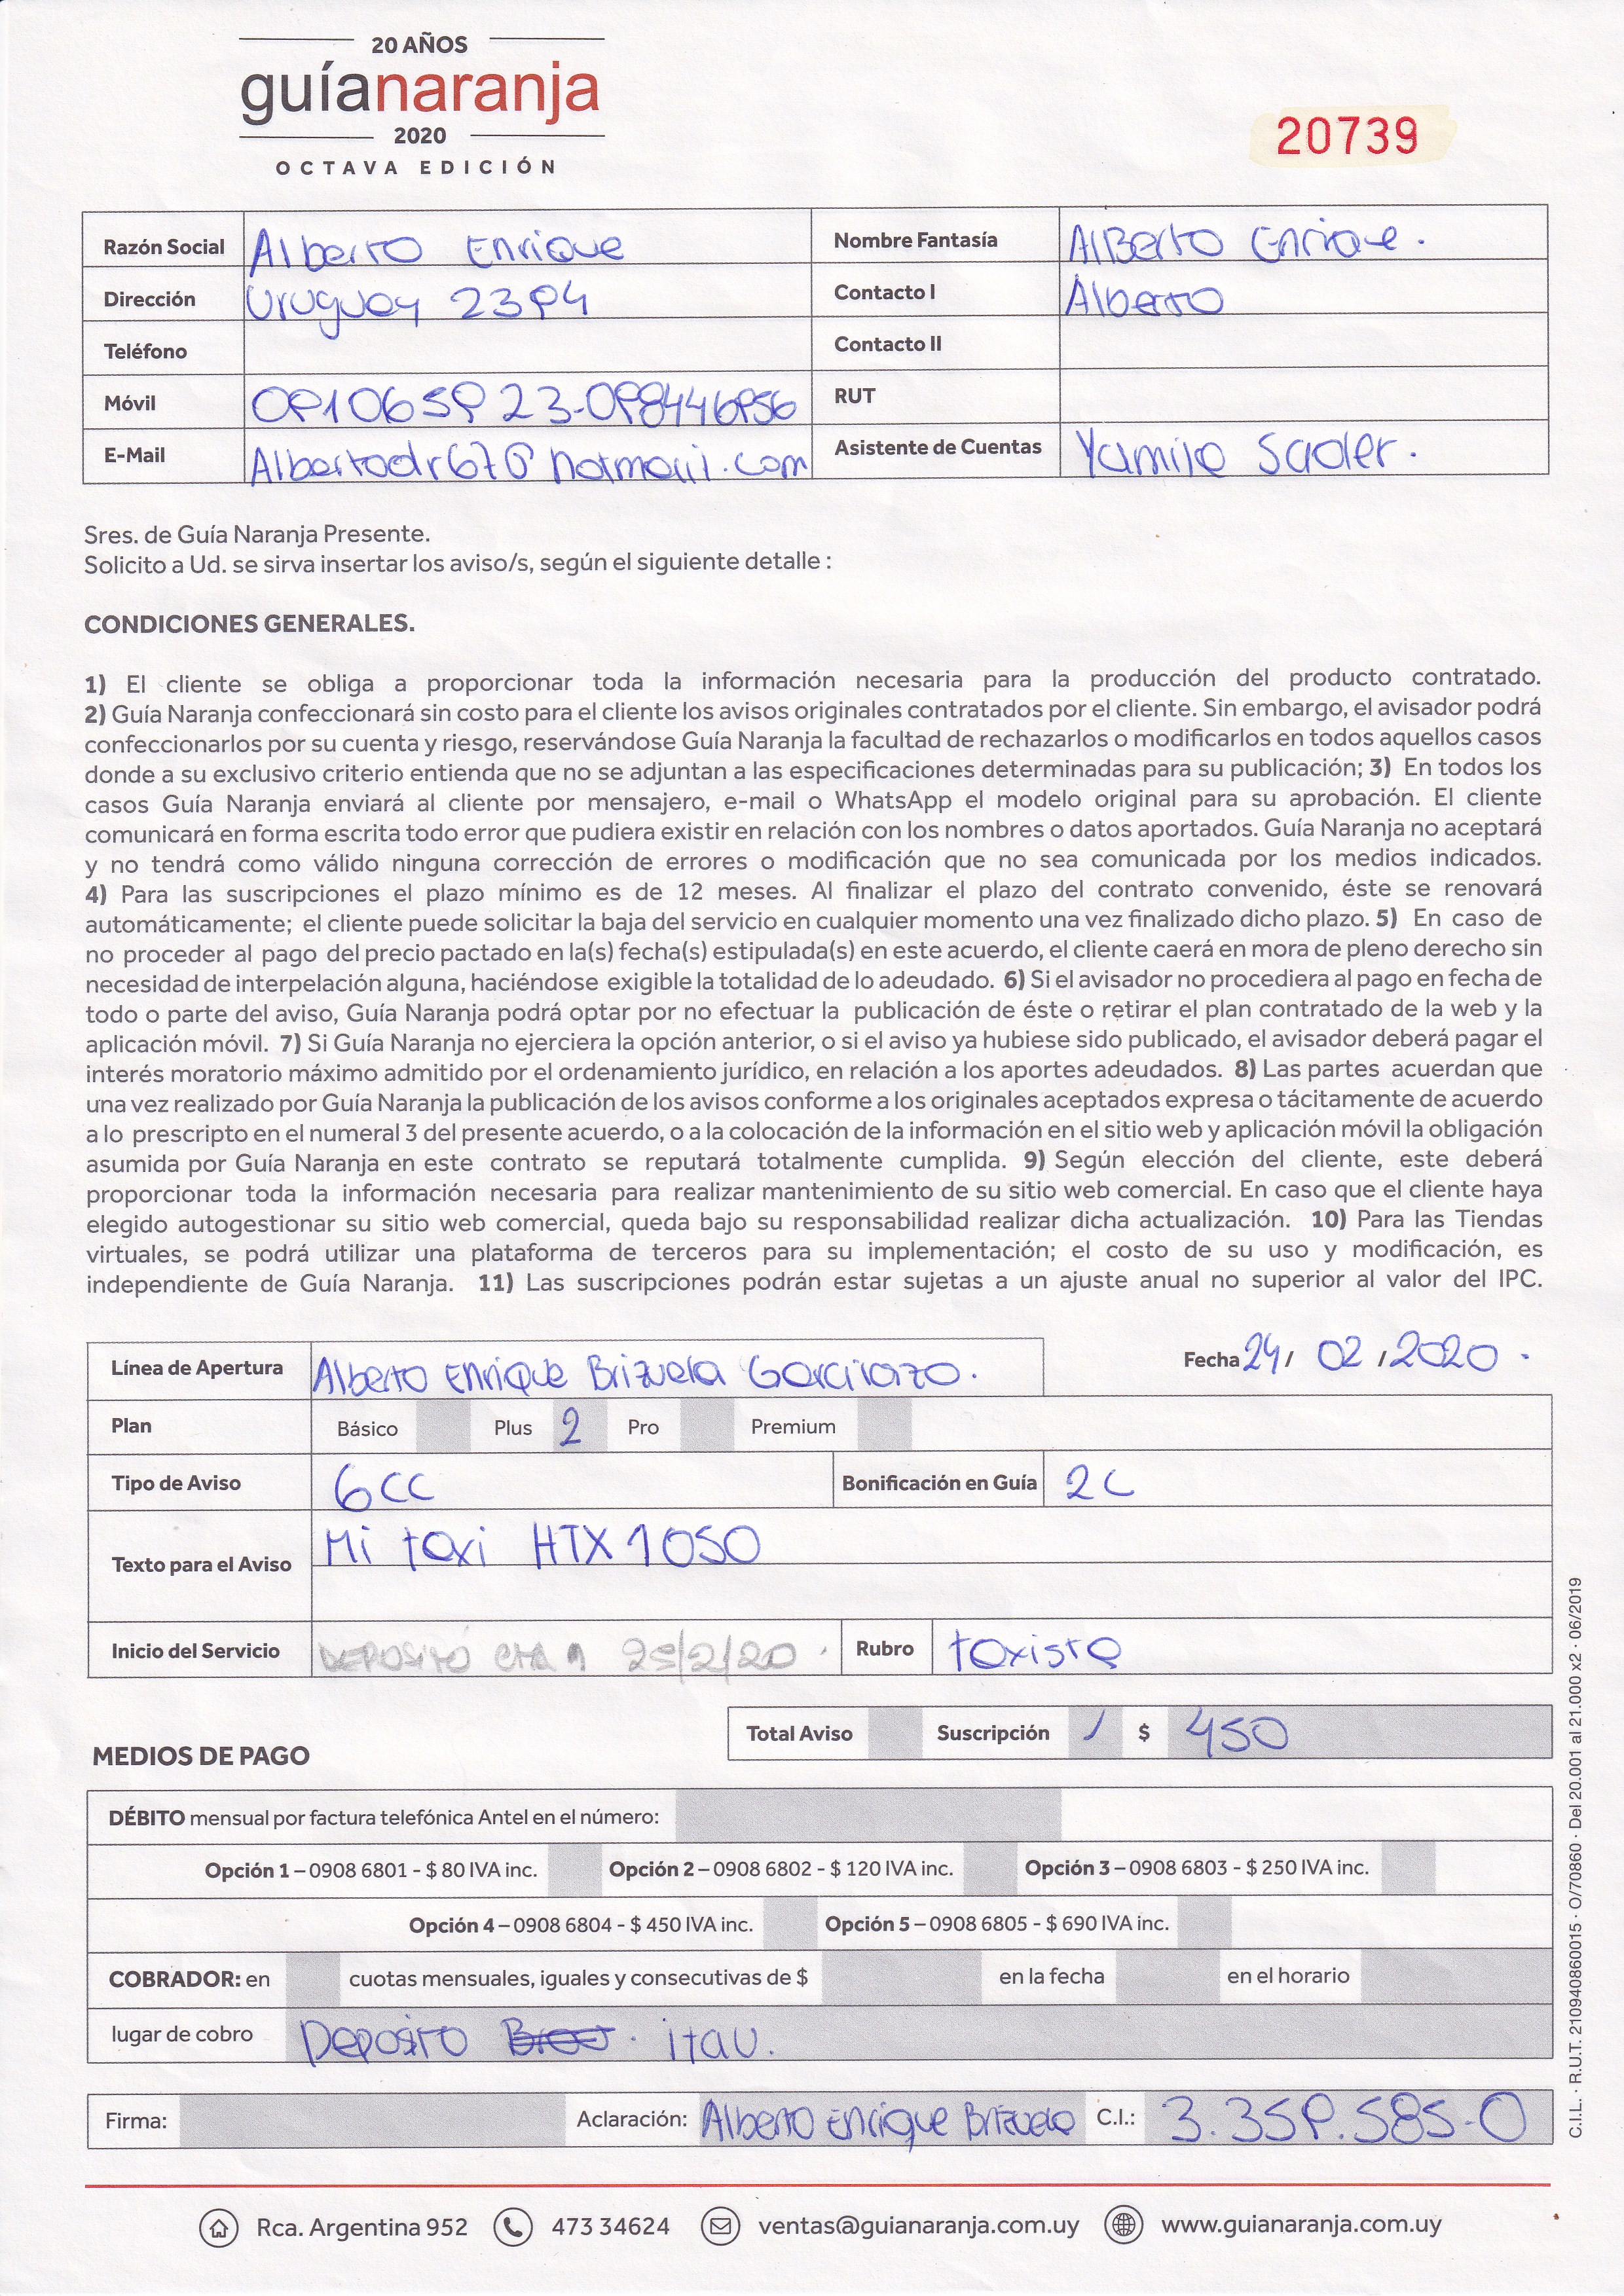 20 AÑOS
guíanaranja
2020
OCTAVA EDICIÓN
20739
Razón Social Alberto Enrique Nombre Fantasía AlBerto Enrique.
Dirección Uruguay 2394 Contacto I Alberto
Teléfono Contacto II
Móvil 091065923-098446956 RUT
E-Mail Asistente de Cuentas
Sres. de Guía Naranja Presente.
Solicito a Ud. se sirva insertar los aviso/s, según el siguiente detalle :
CONDICIONES GENERALES.
1) El cliente se obliga a proporcionar toda la información necesaria para la producción del producto contratado.
2) Guía Naranja confeccionará sin costo para el cliente los avisos originales contratados por el cliente. Sin embargo, el avisador podrá
confeccionarlos por su cuenta y riesgo, reservándose Guía Naranja la facultad de rechazarlos o modificarlos en todos aquellos casos
donde a su exclusivo criterio entienda que no se adjuntan a las especificaciones determinadas para su publicación; 3) En todos los
casos Guía Naranja enviará al cliente por mensajero, e-mail o WhatsApp el modelo original para su aprobación. El cliente
comunicará en forma escrita todo error que pudiera existir en relación con los nombres o datos aportados. Guía Naranja no aceptará
y no tendrá como válido ninguna corrección de errores o modificación que no sea comunicada por los medios indicados.
4) Para las suscripciones el plazo mínimo es de 12 meses. Al finalizar el plazo del contrato convenido, éste se renovará
automáticamente; el cliente puede solicitar la baja del servicio en cualquier momento una vez finalizado dicho plazo. 5) En caso de
no proceder al pago del precio pactado en la(s) fecha(s) estipulada(s) en este acuerdo, el cliente caerá en mora de pleno derecho sin
necesidad de interpelación alguna, haciéndose exigible la totalidad de lo adeudado. 6) Si el avisador no procediera al pago en fecha de
todo o parte del aviso, Guía Naranja podrá optar por no efectuar la publicación de éste o retirar el plan contratado de la web y la
aplicación móvil. 7) Si Guía Naranja no ejerciera la opción anterior, o si el aviso ya hubiese sido publicado, el avisador deberá pagar el
interés moratorio máximo admitido por el ordenamiento jurídico, en relación a los aportes adeudados. 8) Las partes acuerdan que
una vez realizado por Guía Naranja la publicación de los avisos conforme a los originales aceptados expresa o tácitamente de acuerdo
a lo prescripto en el numeral 3 del presente acuerdo, o a la colocación de la información en el sitio web y aplicación móvil la obligación
asumida por Guía Naranja en este contrato se reputará totalmente cumplida. 9) Según elección del cliente, este deberá
proporcionar toda la información necesaria para realizar mantenimiento de su sitio web comercial. En caso que el cliente haya
elegido autogestionar su sitio web comercial, queda bajo su responsabilidad realizar dicha actualización. 10) Para las Tiendas
virtuales, se podrá utilizar una plataforma de terceros para su implementación; el costo de su uso y modificación, es
independiente de Guía Naranja. 11) Las suscripciones podrán estar sujetas a un ajuste anual no superior al valor del IPC.
Línea de Apertura Alberto Enrique Brizuela Garcilazo. Fecha 24/ 02 /2020.
Plan Básico Plus 2 Pro Premium
Tipo de Aviso 6CC Bonificación en Guía 2C
Texto para el Aviso Mi taxi HTX 1050
Inicio del Servicio DEPOSITO 25/2/20. Rubro taxista
Total Aviso Suscripción / $ 450
MEDIOS DE PAGO
DÉBITO mensual por factura telefónica Antel en el número:
Opción 1 – 0908 6801 - $ 80 IVA inc. Opción 2 – 0908 6802 - $ 120 IVA inc. Opción 3 – 0908 6803 - $ 250 IVA inc.
Opción 4 – 0908 6804 - $ 450 IVA inc. Opción 5 – 0908 6805 - $ 690 IVA inc.
COBRADOR: en cuotas mensuales, iguales y consecutivas de $ en la fecha en el horario
lugar de cobro Deposito itau.
Firma: Aclaración: Alberto Enrique Brizuela C.I.: 3.359.585-0
Rca. Argentina 952 473 34624 ventas@guianaranja.com.uy www.guianaranja.com.uy
C.I.L. · R.U.T. 210940860015 · O/70860 · Del 20.001 al 21.000 x2 · 06/2019